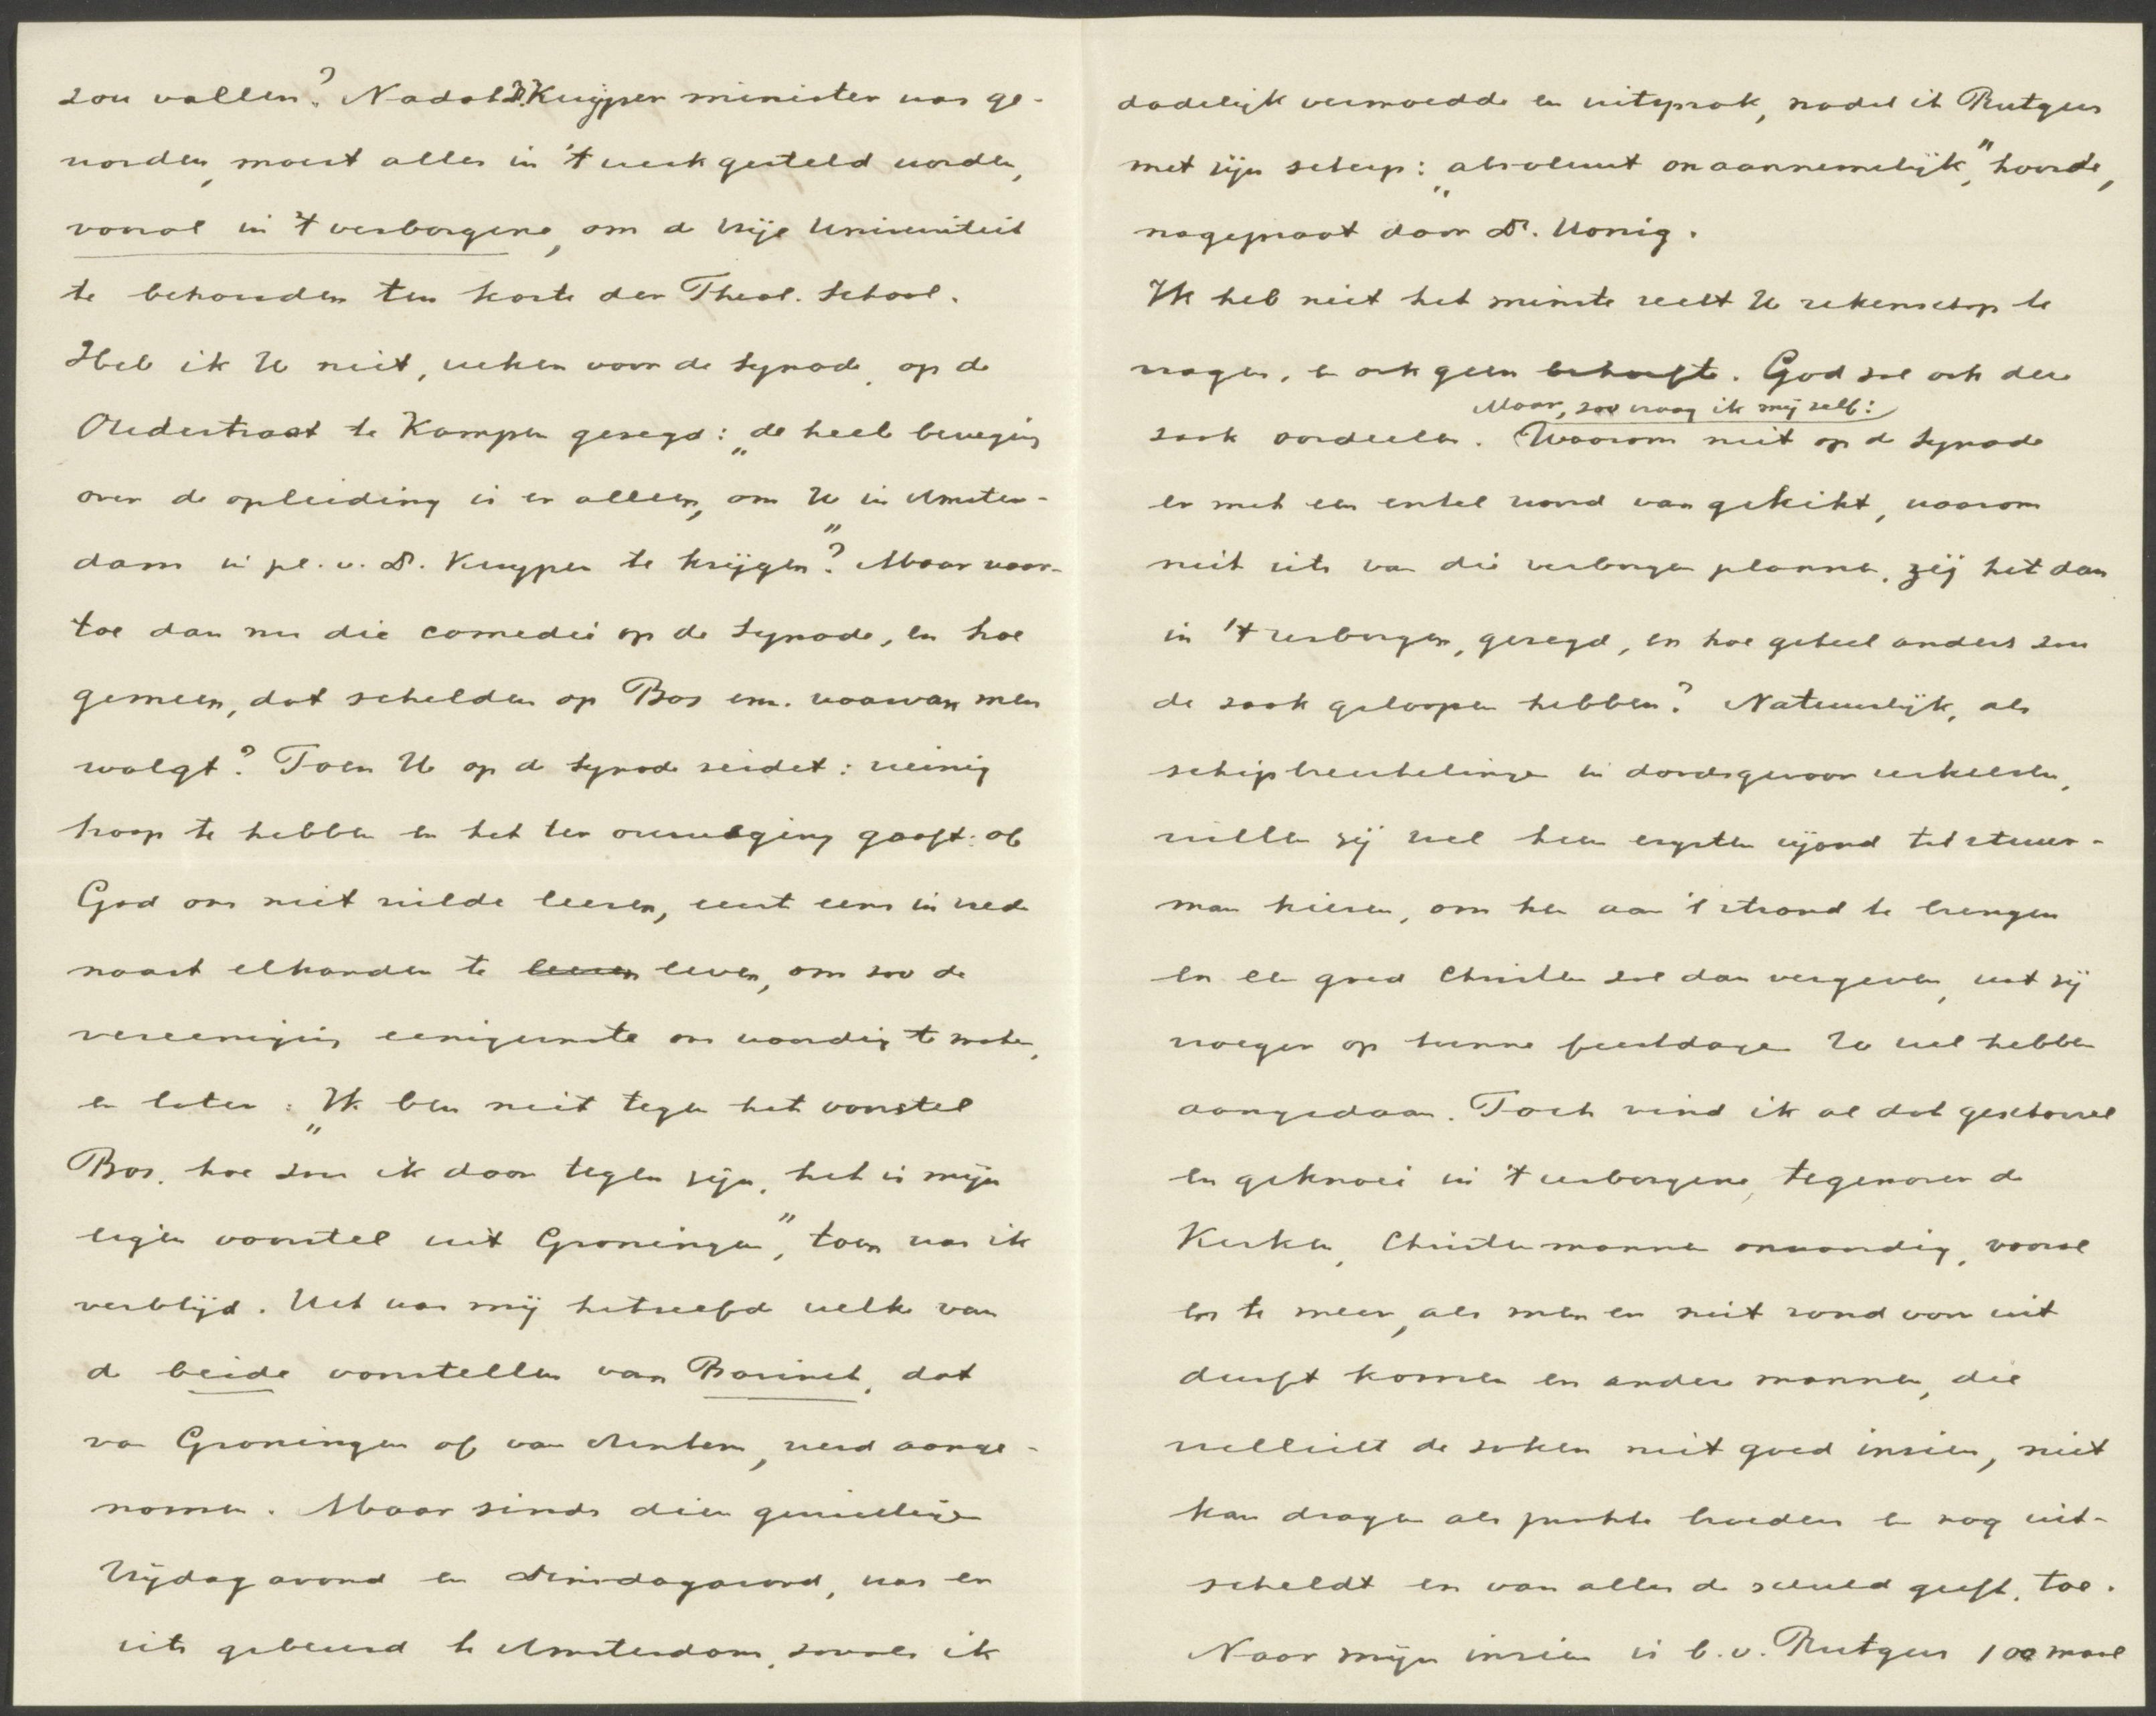 zou vallen? Nadat Dr. Kuyper minister was ge-
worden, moest alles in 't werk gesteld worden,
vooral in 't verborgene, om de Vrije Universiteit
te behouden ten koste der Theol. School.
Heb ik U niet, weken voor de Synode, op de
Oudestraat te Kampen gezegd: „de heele beweging
over de opleiding is er alleen, om U in Amster-
dam in pl. v. Dr. Kuyper te krijgen"? Maar waar-
toe dan nu die comedie op de Synode, en hoe
gemeen, dat schelden op Bos enz. waarvan men
walgt? Toen U op de Synode zeidet: weinig
hoop te hebben en het ter overweging gaaft: of
God ons niet wilde leeren, eerst eens in vrede
naast elkander te leeren leven, om zoo de
vereeniging eenigermate ons waardig te maken,
en later: „Ik ben niet tegen het voorstel
Bos, hoe zou ik daar tegen zijn, het is mijn
eigen voorstel uit Groningen", toen was ik
verblijd. Het was mij hetzelfde welke van
de beide voorstellen van Bavinck, dat
van Groningen of van Arnhem, werd aange-
nomen. Maar sinds dien
Vrijdagavond en Dinsdagavond, was er
iets gebeurd te Amsterdam, zooals ik
dadelijk vermoedde en uitsprak, nadat ik Rutgers
met zijn scherp: „absoluut onaannemelijk", hoorde,
nagepraat door Dr. Honig.
Ik heb niet het minste recht U rekenschap te
vragen, en ook geen behoefte. God zal ook deze
Maar, zoo vraag ik mij zelf:
zaak oordeelen. Waarom niet op de Synode
er met een enkel woord van gekikt, waarom
niet iets van die verborgen plannen, zij het dan
in 't verborgen, gezegd, en hoe geheel anders zou
de zaak geloopen hebben? Natuurlijk, als
schipbreukelingen in doodsgevaar verkeeren,
willen zij wel hun ergsten vijand tot stuur-
man kiezen, om hen aan 't strand te brengen
en een goed Christen zal dan vergeven, wat zij
vroeger op hunne feestdagen U wel hebben
aangedaan. Toch vind ik al dat gescharrel
en geknoei in 't verborgene, tegenover de
Kerken, Christenmannen onwaardig, vooral
en te meer, als men er niet rond voor uit
durft komen en andere mannen, die
wellicht de zaken niet goed inzien, niet
kan dragen als broeders en nog uit-
scheldt en van alles de schuld geeft, toe.
Naar mijn inzien is b.v. Rutgers 100 maal